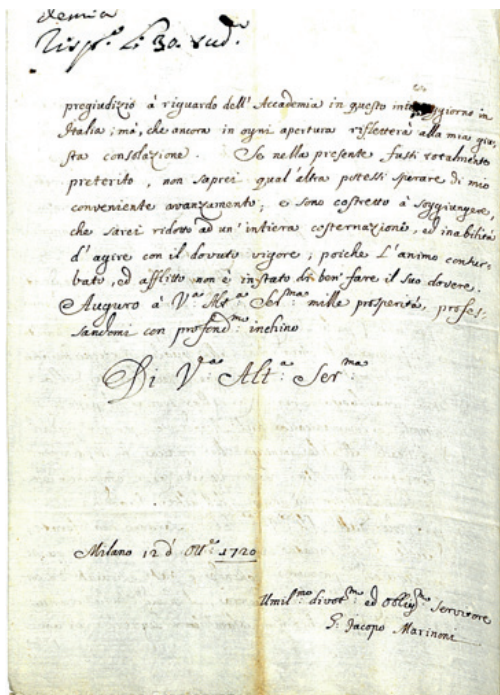 demia
Risp.ᵉ Li 30. sud.ᵉ
pregiudizio à riguardo dell' Accademia in questo mio soggiorno in
Italia; mà, che ancora in ogni apertura rifletterà alla mia giu,
sta consolazione. Se nella presente fussi totalmente
preterito, non saprei qual'altra potessi sperare di mio
conveniente avanzamento; e sono costretto à soggiungere,
che sarei ridotto ad un'intiera costernazione, ed inabilità
d'agire con il dovuto vigore; poiche L'animo contur,
bato, ed afflitto non è in stato di ben' fare il suo dovere.
Auguro à V.ᵃ Alt.ᵃ Ser.ᵐᵃ mille prosperità, profes,
sandomi con profond.ᵐᵒ inchino
Di V.ᵃ Alt.ᵃ Ser.ᵐᵃ
Milano 12 d' Ott.ᵉ 1720
Umil.ᵐᵒ divot.ᵐᵒ ed oblig.ᵐᵒ servitore
G. Jacopo Marinoni